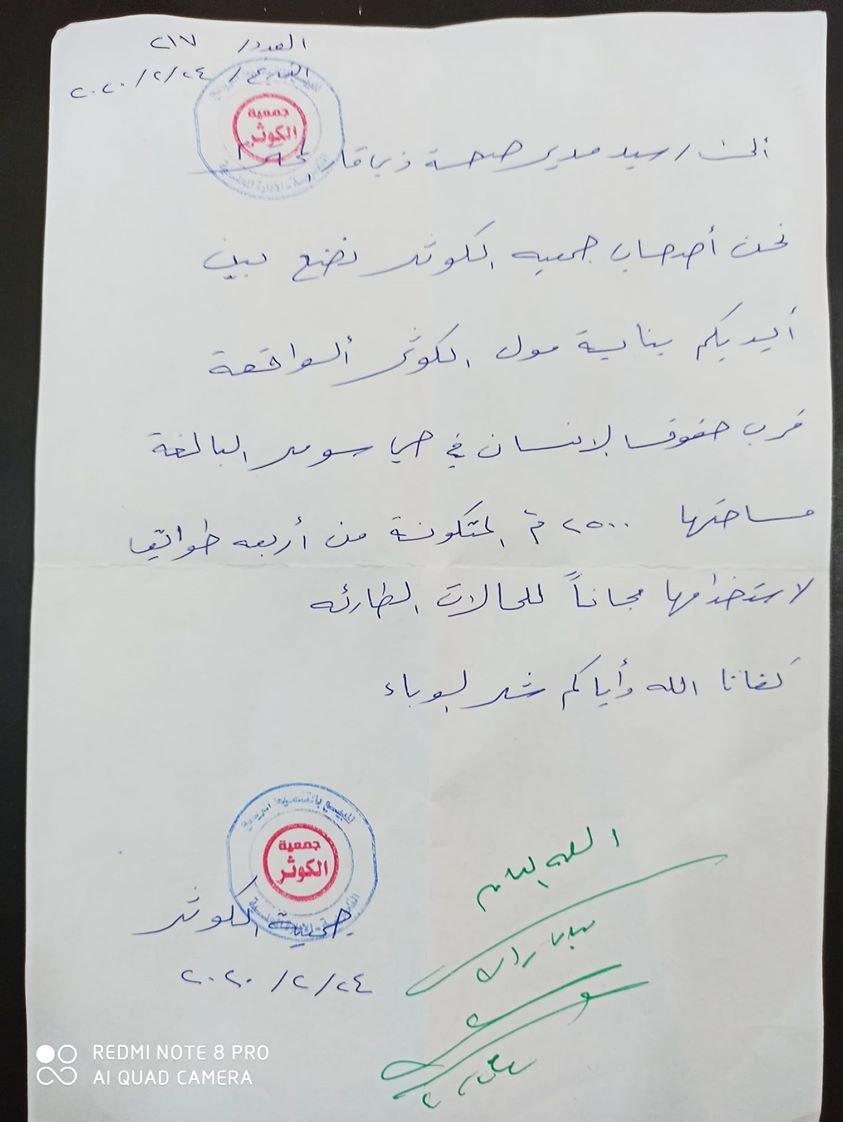 العدد/ ٢١٧
التاريخ/ ٢٠٢٠/٢/٢٤
جمعية
الكوثر
الى / سيد مدير صحة ذي قار المحترم
نحن أصحاب جمعيه الكوثر نضع بين
أيديكم بناية مول الكوثر الواقعة
قرب حقوق الانسان في حي سومر البالغة
مساحتها ٢٥٠٠ م٢ المتكونة من أربعه طوابق
لاستخدامها مجاناً للحالات الطارئه
كفانا الله وأياكم شر الوباء
للبيع بالتقسيط المريح
جمعية
الكوثر
جمعية الكوثر
٢٠٢٠/٢/٢٤
REDMI NOTE 8 PRO
AI QUAD CAMERA